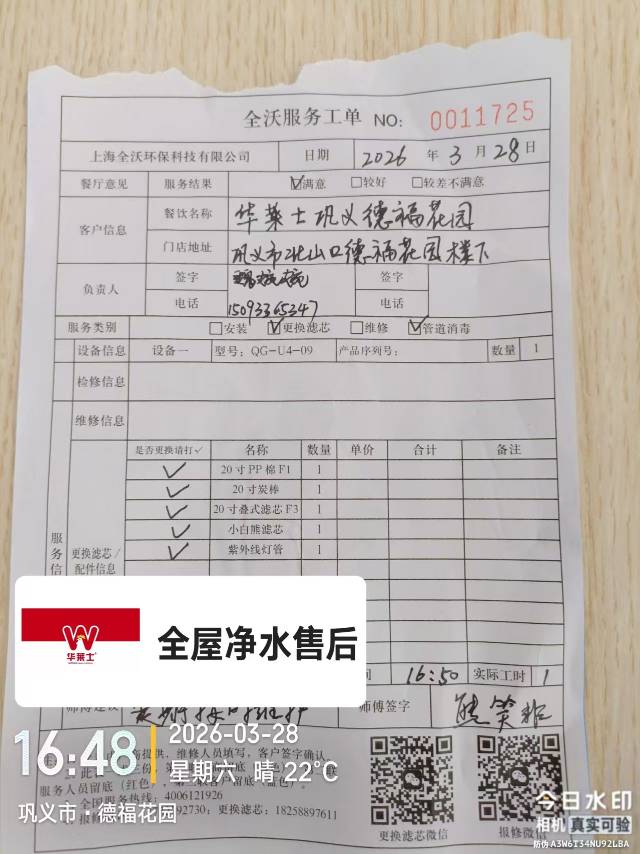 全沃服务工单 NO: 0011725
上海全沃环保科技有限公司 日期 2026 年 3 月 28 日
餐厅意见 服务结果 ☑满意 □较好 □较差不满意
客户信息 餐饮名称 华莱士巩义德福花园
门店地址 巩义市北山口德福花园楼下
负责人 签字 签字
电话 15093365347 电话
服务类别 □安装 ☑更换滤芯 □维修 ☑管道消毒
设备信息 设备一 型号: QG-U4-09 产品序列号: 数量 1
检修信息
维修信息
是否更换请打✓ 名称 数量 单价 合计 备注
✓ 20寸PP棉F1 1
✓ 20寸炭棒 1
✓ 20寸叠式滤芯F3 1
✓ 小白熊滤芯 1
✓ 紫外线灯管 1
服务信
更换滤芯/
配件信息
华莱士
全屋净水售后
16:50 实际工时 1
师傅签字
16:48
2026-03-28
星期六 晴 22℃
巩义市·德福花园
提供, 维修人员填写, 客户签字确认
服务人员留底(红色)
全国服务热线: 4006121926
92730; 更换滤芯: 18258897611
更换滤芯微信 报修微信
今日水印
相机 真实可验
防伪 A3W6T34NU92LBA